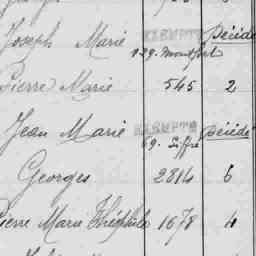 Joseph Marie EXEMPTÉ Décédé
129. Montfort
Pierre Marie 545 2
Jean Marie EXEMPTÉ Décédé
69. Siffre
Georges 2814 6
Pierre Marie Théophile 1678 4